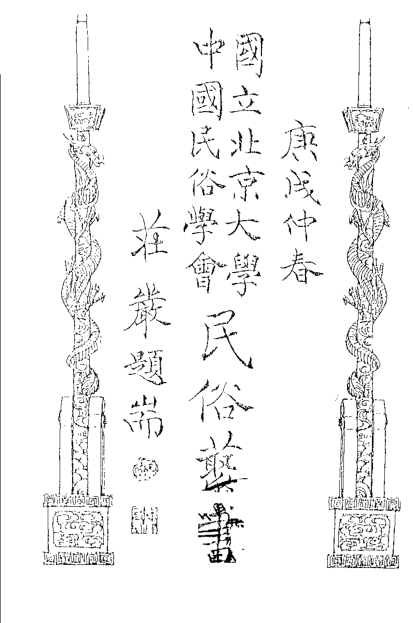 庚戌仲春
國立北京大學
中國民俗學會
民俗
莊嚴題耑